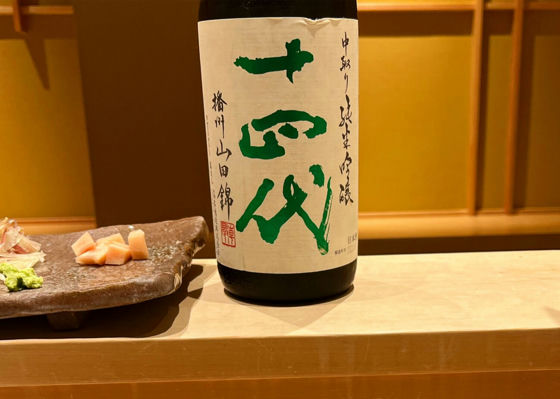 中取り純米吟醸
十四代
播州山田錦